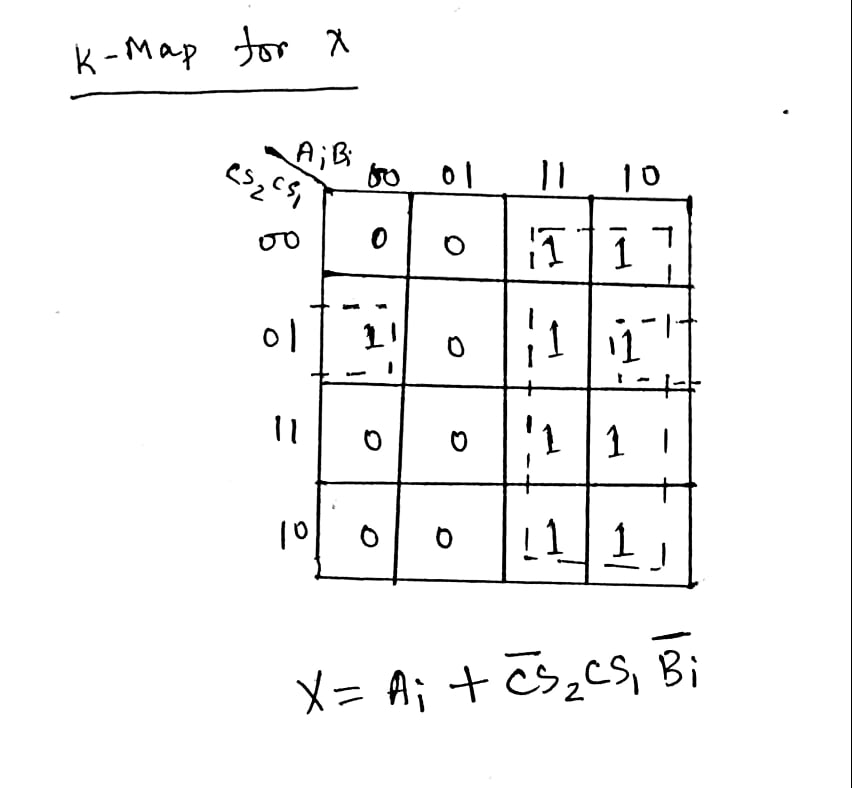 K-Map for X
AiBi
CS₂CS₁ 00 01 11 10
00 0 0 1 1
01 1 0 1 1
11 0 0 1 1
10 0 0 1 1
X = Ai + C̅S₂CS₁ B̅i